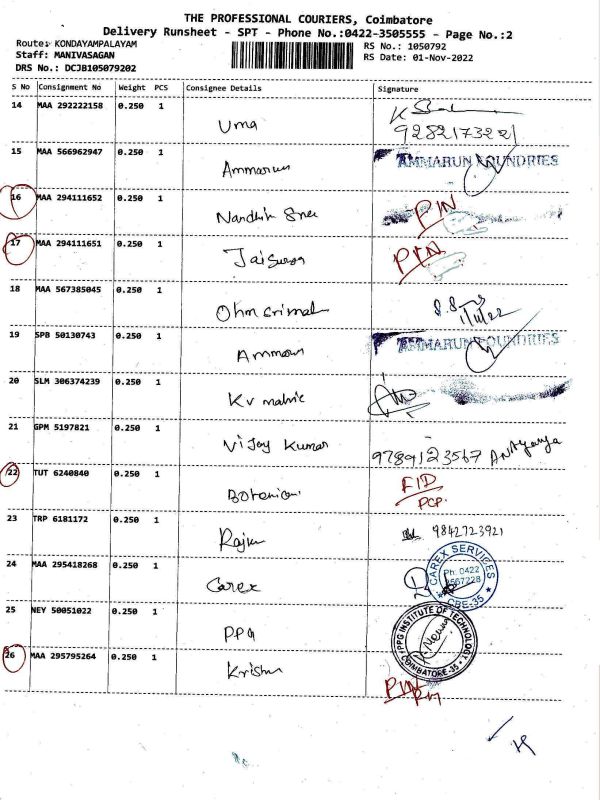 THE PROFESSIONAL COURIERS, Coimbatore
Delivery Runsheet - SPT - Phone No.:0422-3505555 - Page No.:2
Route: KONDAYAMPALAYAM
Staff: MANIVASAGAN
DRS No.: DCJB105079202
RS No.: 1050792
RS Date: 01-Nov-2022
S No Consignment No Weight PCS Consignee Details Signature
14 MAA 292222158 0.250 1 Uma
9282173221
15 MAA 566962947 0.250 1 Ammarun AMMARUN FOUNDRIES
16 MAA 294111652 0.250 1 Nandhik Sree PIN
17 MAA 294111651 0.250 1 Jaisurya PIN
18 MAA 567385045 0.250 1 Ohm srimal
1/11/22
19 SPB 50130743 0.250 1 Ammarun AMMARUN FOUNDRIES
20 SLM 306374239 0.250 1 Kv
21 GPM 5197821 0.250 1 Vijay Kumar 9789123567
22 TUT 6240840 0.250 1 FID
PCP.
23 TRP 6181172 0.250 1 Raju 9842723921
24 MAA 295418268 0.250 1 Carex CAREX SERVICES
Ph: 0422
2567228
CBE-35
25 NEY 50051022 0.250 1 PPG PPG INSTITUTE OF TECHNOLOGY
COIMBATORE-35
26 MAA 295795264 0.250 1 Krishn PIN